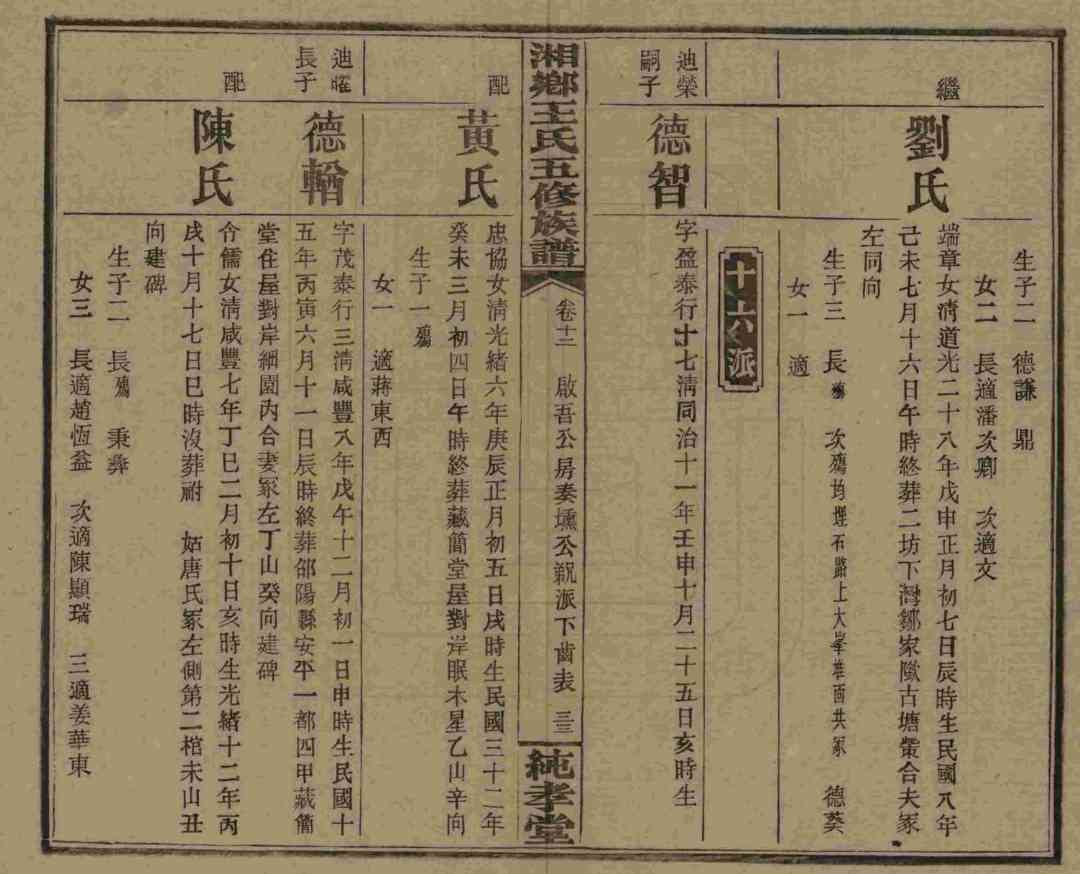 生子二 德謙 鼎
女二 長適潘次卿 次適文
繼
劉氏
端章女淸道光二十八年戊申正月初七日辰時生民國八年
己未七月十六日午時終葬二坊下灣鄒家隞古塘塋合夫冢
左同向
生子三 長殤 次殤均埋石路上大峯堆面共冢 德葵
女一 適
十六派
迪榮
嗣子
德智
字盈泰行十七淸同治十一年壬申十月二十五日亥時生
湘鄉王氏五修族譜
卷十二 啟吾公房奏壎公𧠺派下齒表 三三
純孝堂
配
黃氏
忠協女淸光緒六年庚辰正月初五日戌時生民國三十二年
癸未三月初四日午時終葬藏簡堂屋對岸眠木星乙山辛向
生子一殤
女一 適蔣東西
迪曜
長子
德輶
字茂泰行三淸咸豐八年戊午十二月初一日申時生民國十
五年丙寅六月十一日辰時終葬邵陽縣安平一都四甲藏簡
堂住屋對岸細園內合妻冢左丁山癸向建碑
配
陳氏
令儒女淸咸豐七年丁巳二月初十日亥時生光緒十二年丙
戌十月十七日巳時沒葬祔 姑唐氏冢左側第二棺未山丑
向建碑
生子二 長殤 秉彝
女三 長適趙恆益 次適陳顯瑞 三適姜華東